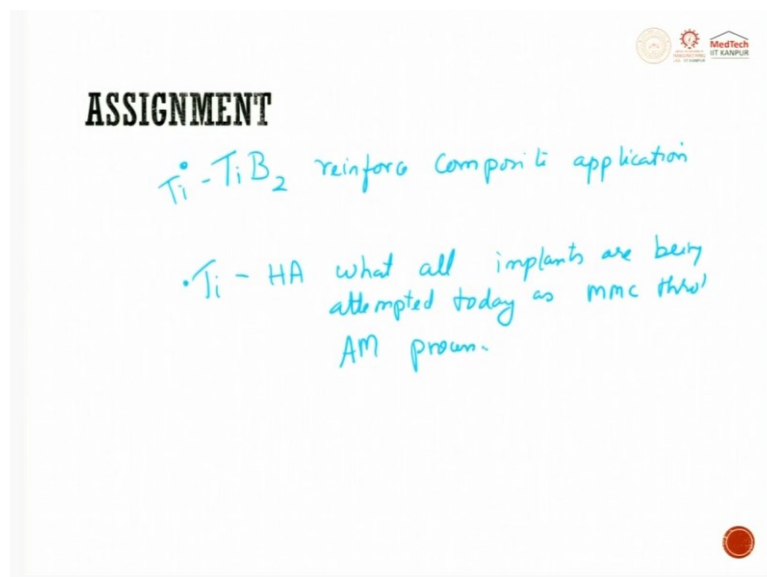 MedTech
IIT KANPUR
ASSIGNMENT
Ti - TiB2 reinforce composite application
• Ti - HA what all implants are being
attempted today as MMC thro'
AM process.